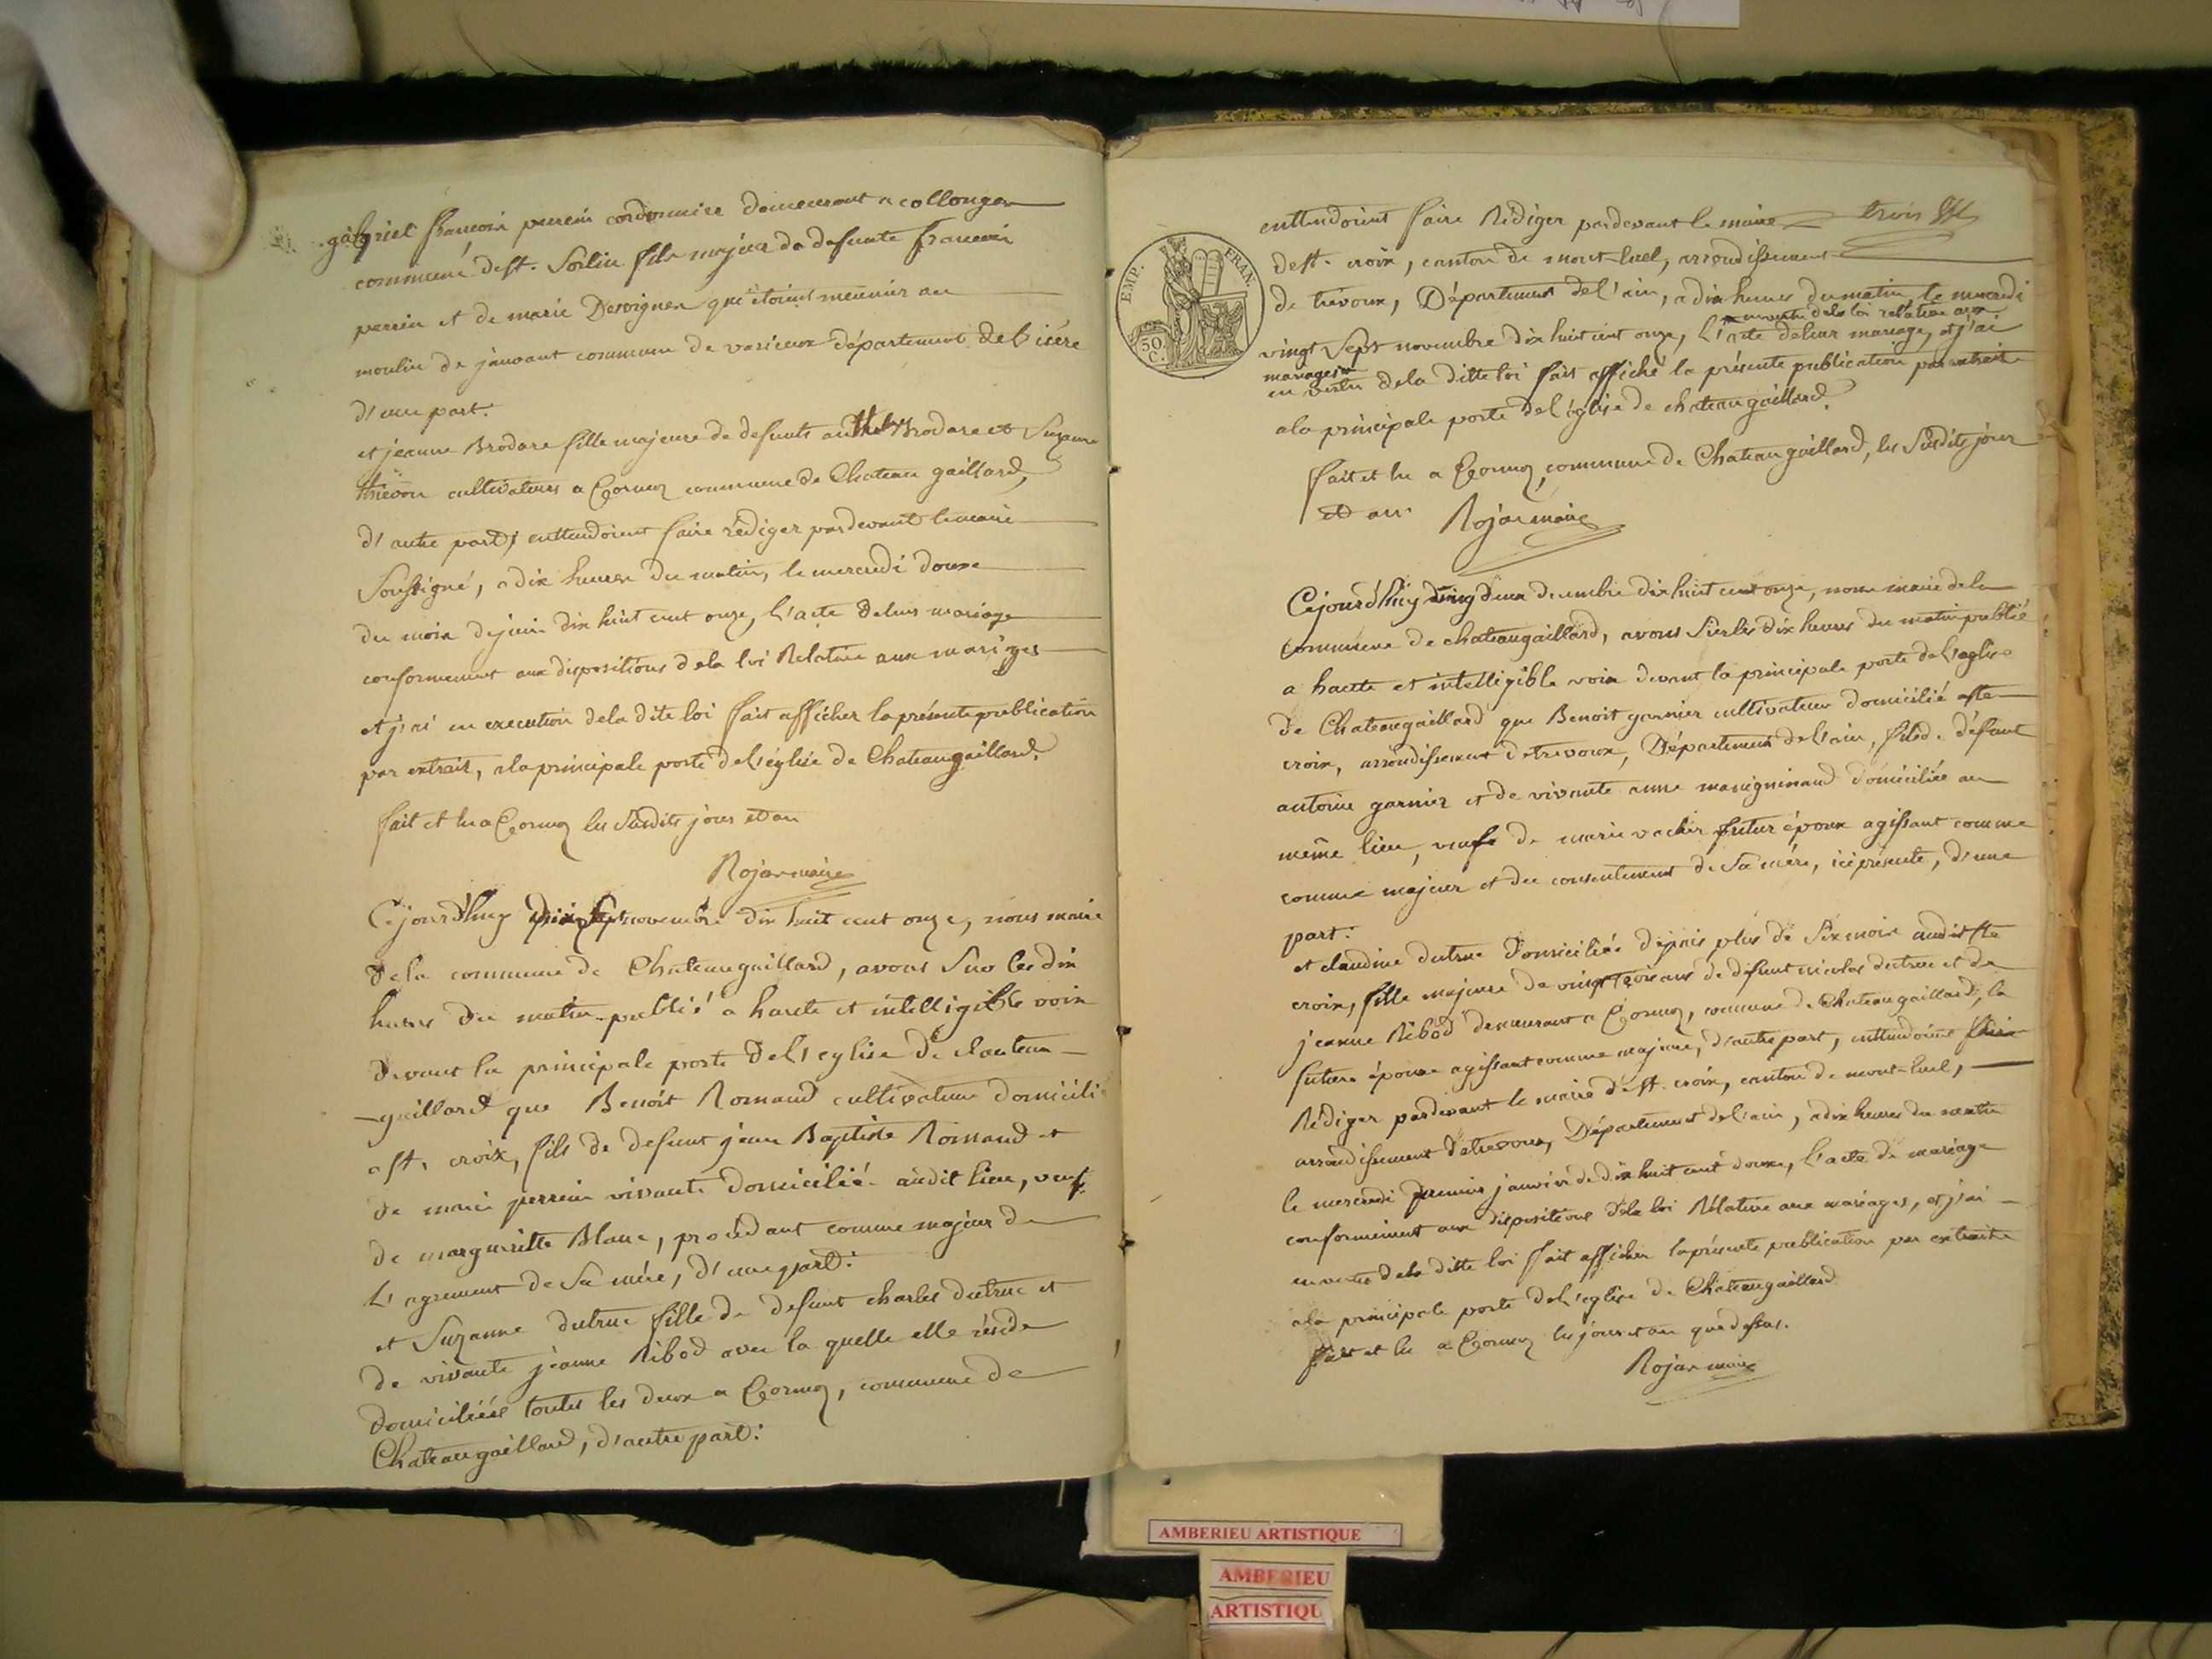 gabriel françois perrein cordonnier demeurant a collonges
commune de st. Sorlin fils majeur de defunts françois
perrein et de marie Desvignes qui étoient meunier au
moulin de janvant commune de varieux département de l'isère
d'une part.
et jeanne Brodare fille majeure de defunts Brodare et Suzanne
thievon cultivateurs a Cormoz commune de Chateau gaillard,
d'autre part; entendoient faire rédiger pardevant le maire
Soussigné, a dix heures du matin, le mercredi douze
du mois de juin dix huit cent onze, l'acte de leur mariage
conformement aux dispositions de la loi Relative aux mariages
et j'ai en execution de la dite loi fait afficher la présente publication
par extrait, a la principale porte de l'église de Chateaugaillard.
fait et lu a Cormoz les Susdits jour et an
Rojar maire
Cejourd'huy dix Sept novembre dix huit cent onze, nous maire
de la commune de Chateaugaillard, avons Sur les dix
heures du matin publié a haute et intelligible voix
devant la principale porte de l'eglise de chateau
-gaillard que Benoît Romand cultivateur domicilié
a st. croix, fils de defunt jean Baptiste Romand et
de marie perrein vivante domiciliée audit lieu, veuf
de margueritte Blanc, procedant comme majeur de
l'agrement de Sa mère, d'une part:
et Suzanne dutruc fille de defunt charles dutruc et
de vivante jeanne Ribod avec la quelle elle réside
domiciliées toutes les deux a Cormoz, commune de
Chateaugaillard, d'autre part:
trois
EMP. FRAN.
50 C.
enttendoient faire Rédiger pardevant le maire
de st. croix, canton de mont-luel, arrondissement
de trévoux, Département de l'ain, a dix heures du matin, le mercredi
en vertu de la loi relative aux
vingt Sept novembre dix huit cent onze, l'acte de leur mariage, et j'ai
mariages
en vertu de la ditte loi fait affiché la présente publication par extrait
a la principale porte de l'église de chateaugaillard.
fait et lu a Cormoz, commune de Chateaugaillard, les Susdits jour
et an. Rojar maire
Cejourd'huy vingt deux decembre dix huit cent onze, nous maire de la
commune de chateaugaillard, avons Sur les dix heures du matin publié
a haute et intelligible voix devant la principale porte de l'eglise
de Chateaugaillard que Benoit garnier cultivateur domicilié a ste
croix, arrondissement de trevoux, Département de l'ain, fils de défunt
antoine garnier et de vivante anne domiciliée au
même lieu, veuf de marie vacher futur époux agissant comme
comme majeur et du consentement de Sa mère, ici présente, d'une
part:
et claudine dutruc domiciliée depuis plus de Six mois audit ste
croix, fille majeure de vingt trois ans de défunt nicolas dutruc et de
jeanne Ribod demeurant a Cormoz, commune de Chateaugaillard, la
future épouse agissant comme majeure, d'autre part, entendoient faire
Rédiger pardevant le maire de st. croix, canton de mont-luel,
arrondissement de trevoux, Département de l'ain, a dix heures du matin
le mercredi premier janvier de dix huit cent douze, l'acte de mariage
conformement aux dispositions de la loi Rélative aux mariages, et j'ai
en vertu de la ditte loi fait afficher la présente publication par extrait
a la principale porte de l'eglise de Chateaugaillard
fait et lu a Cormoz les jour et an que dessus.
Rojar maire
AMBERIEU ARTISTIQUE
AMBERIEU
ARTISTIQU